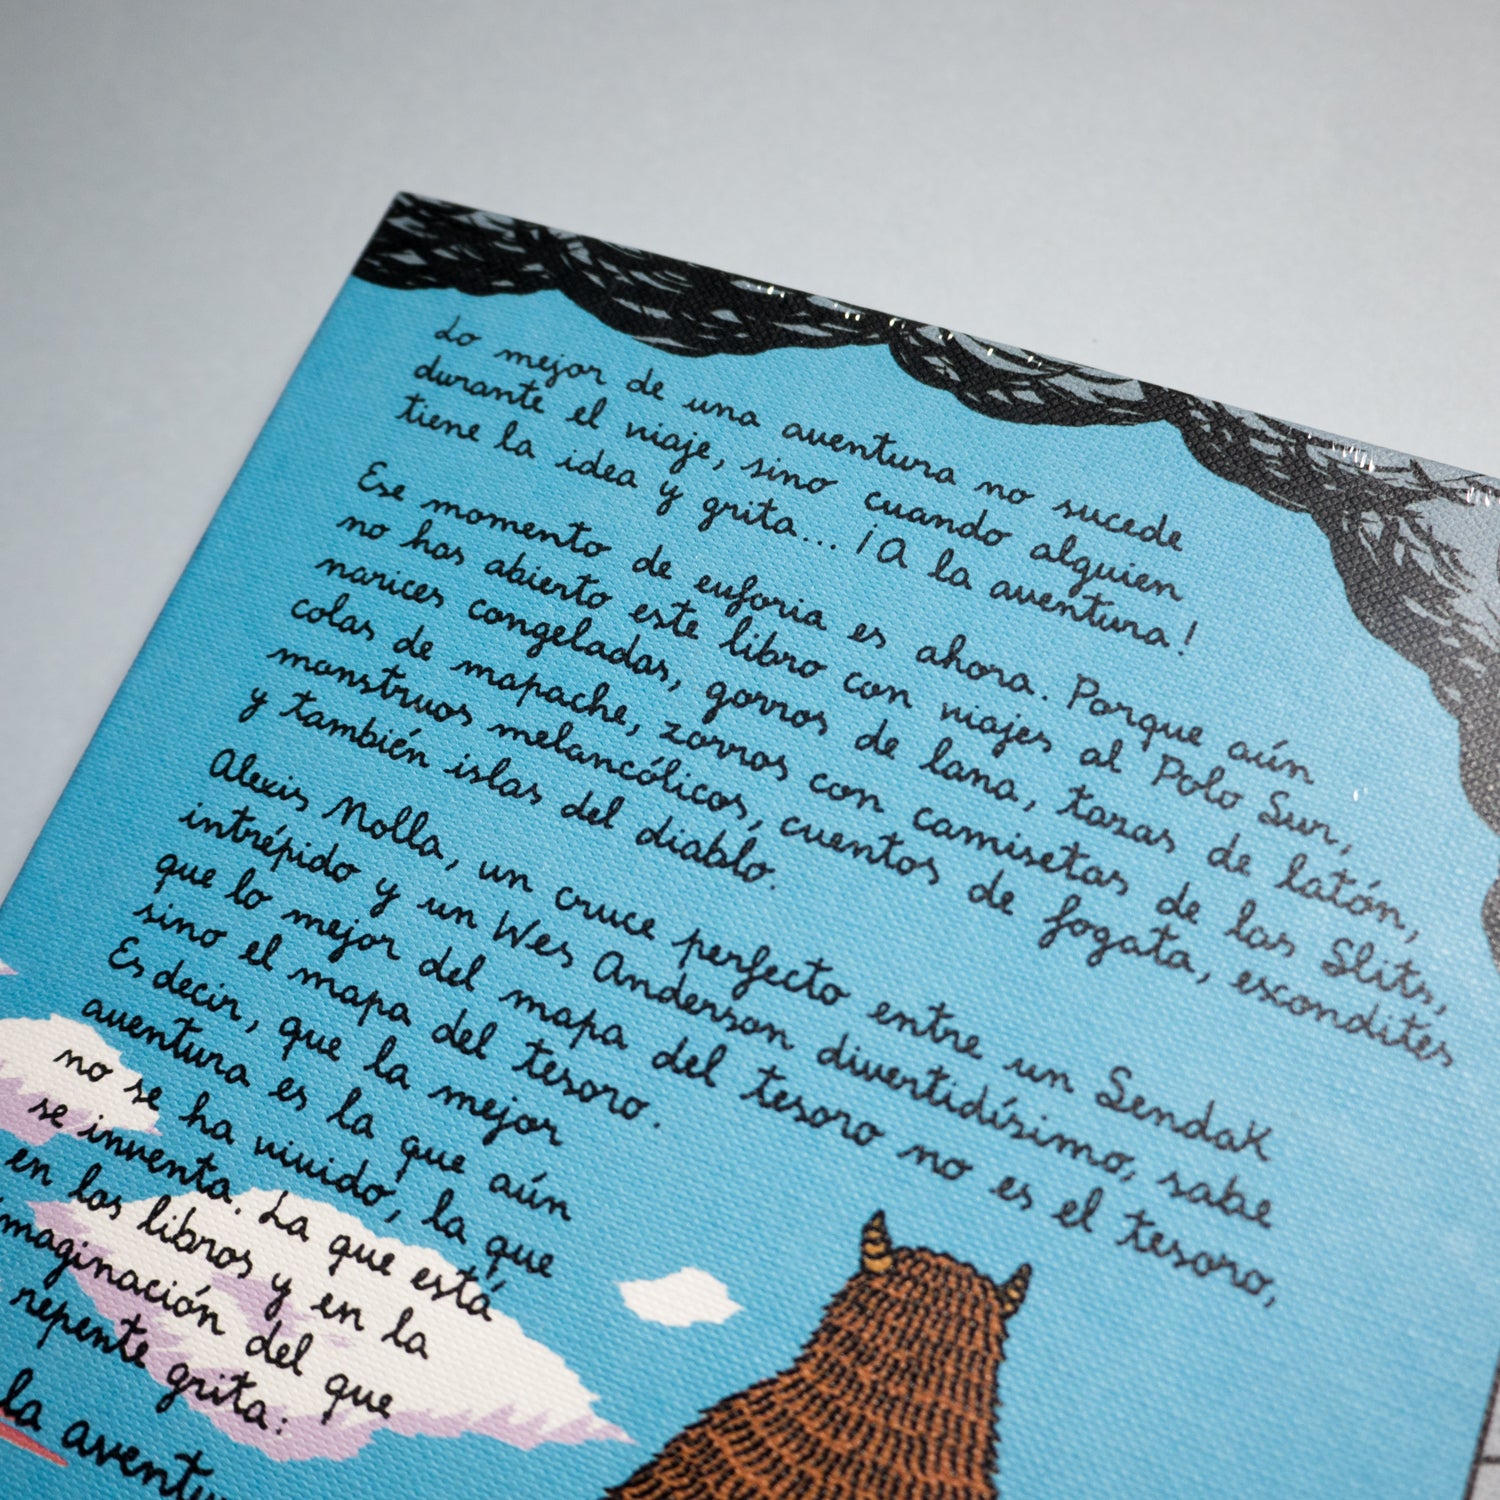 Lo mejor de una aventura no sucede
durante el viaje, sino cuando alguien
tiene la idea y grita... ¡A la aventura!
Ese momento de euforia es ahora. Porque aún
no has abierto este libro con viajes al Polo Sur,
narices congeladas, gorros de lana, tazas de latón,
colas de mapache, zorros con camisetas de las Slits,
monstruos melancólicos, cuentos de fogata, escondites
y también islas del diablo.
Alexis Nolla, un cruce perfecto entre un Sendak
intrépido y un Wes Anderson divertidísimo, sabe
que lo mejor del mapa del tesoro no es el tesoro,
sino el mapa del tesoro.
Es decir, que la mejor
aventura es la que aún
no se ha vivido, la que
se inventa. La que está
en los libros y en la
imaginación del que
repente grita:
la aventu